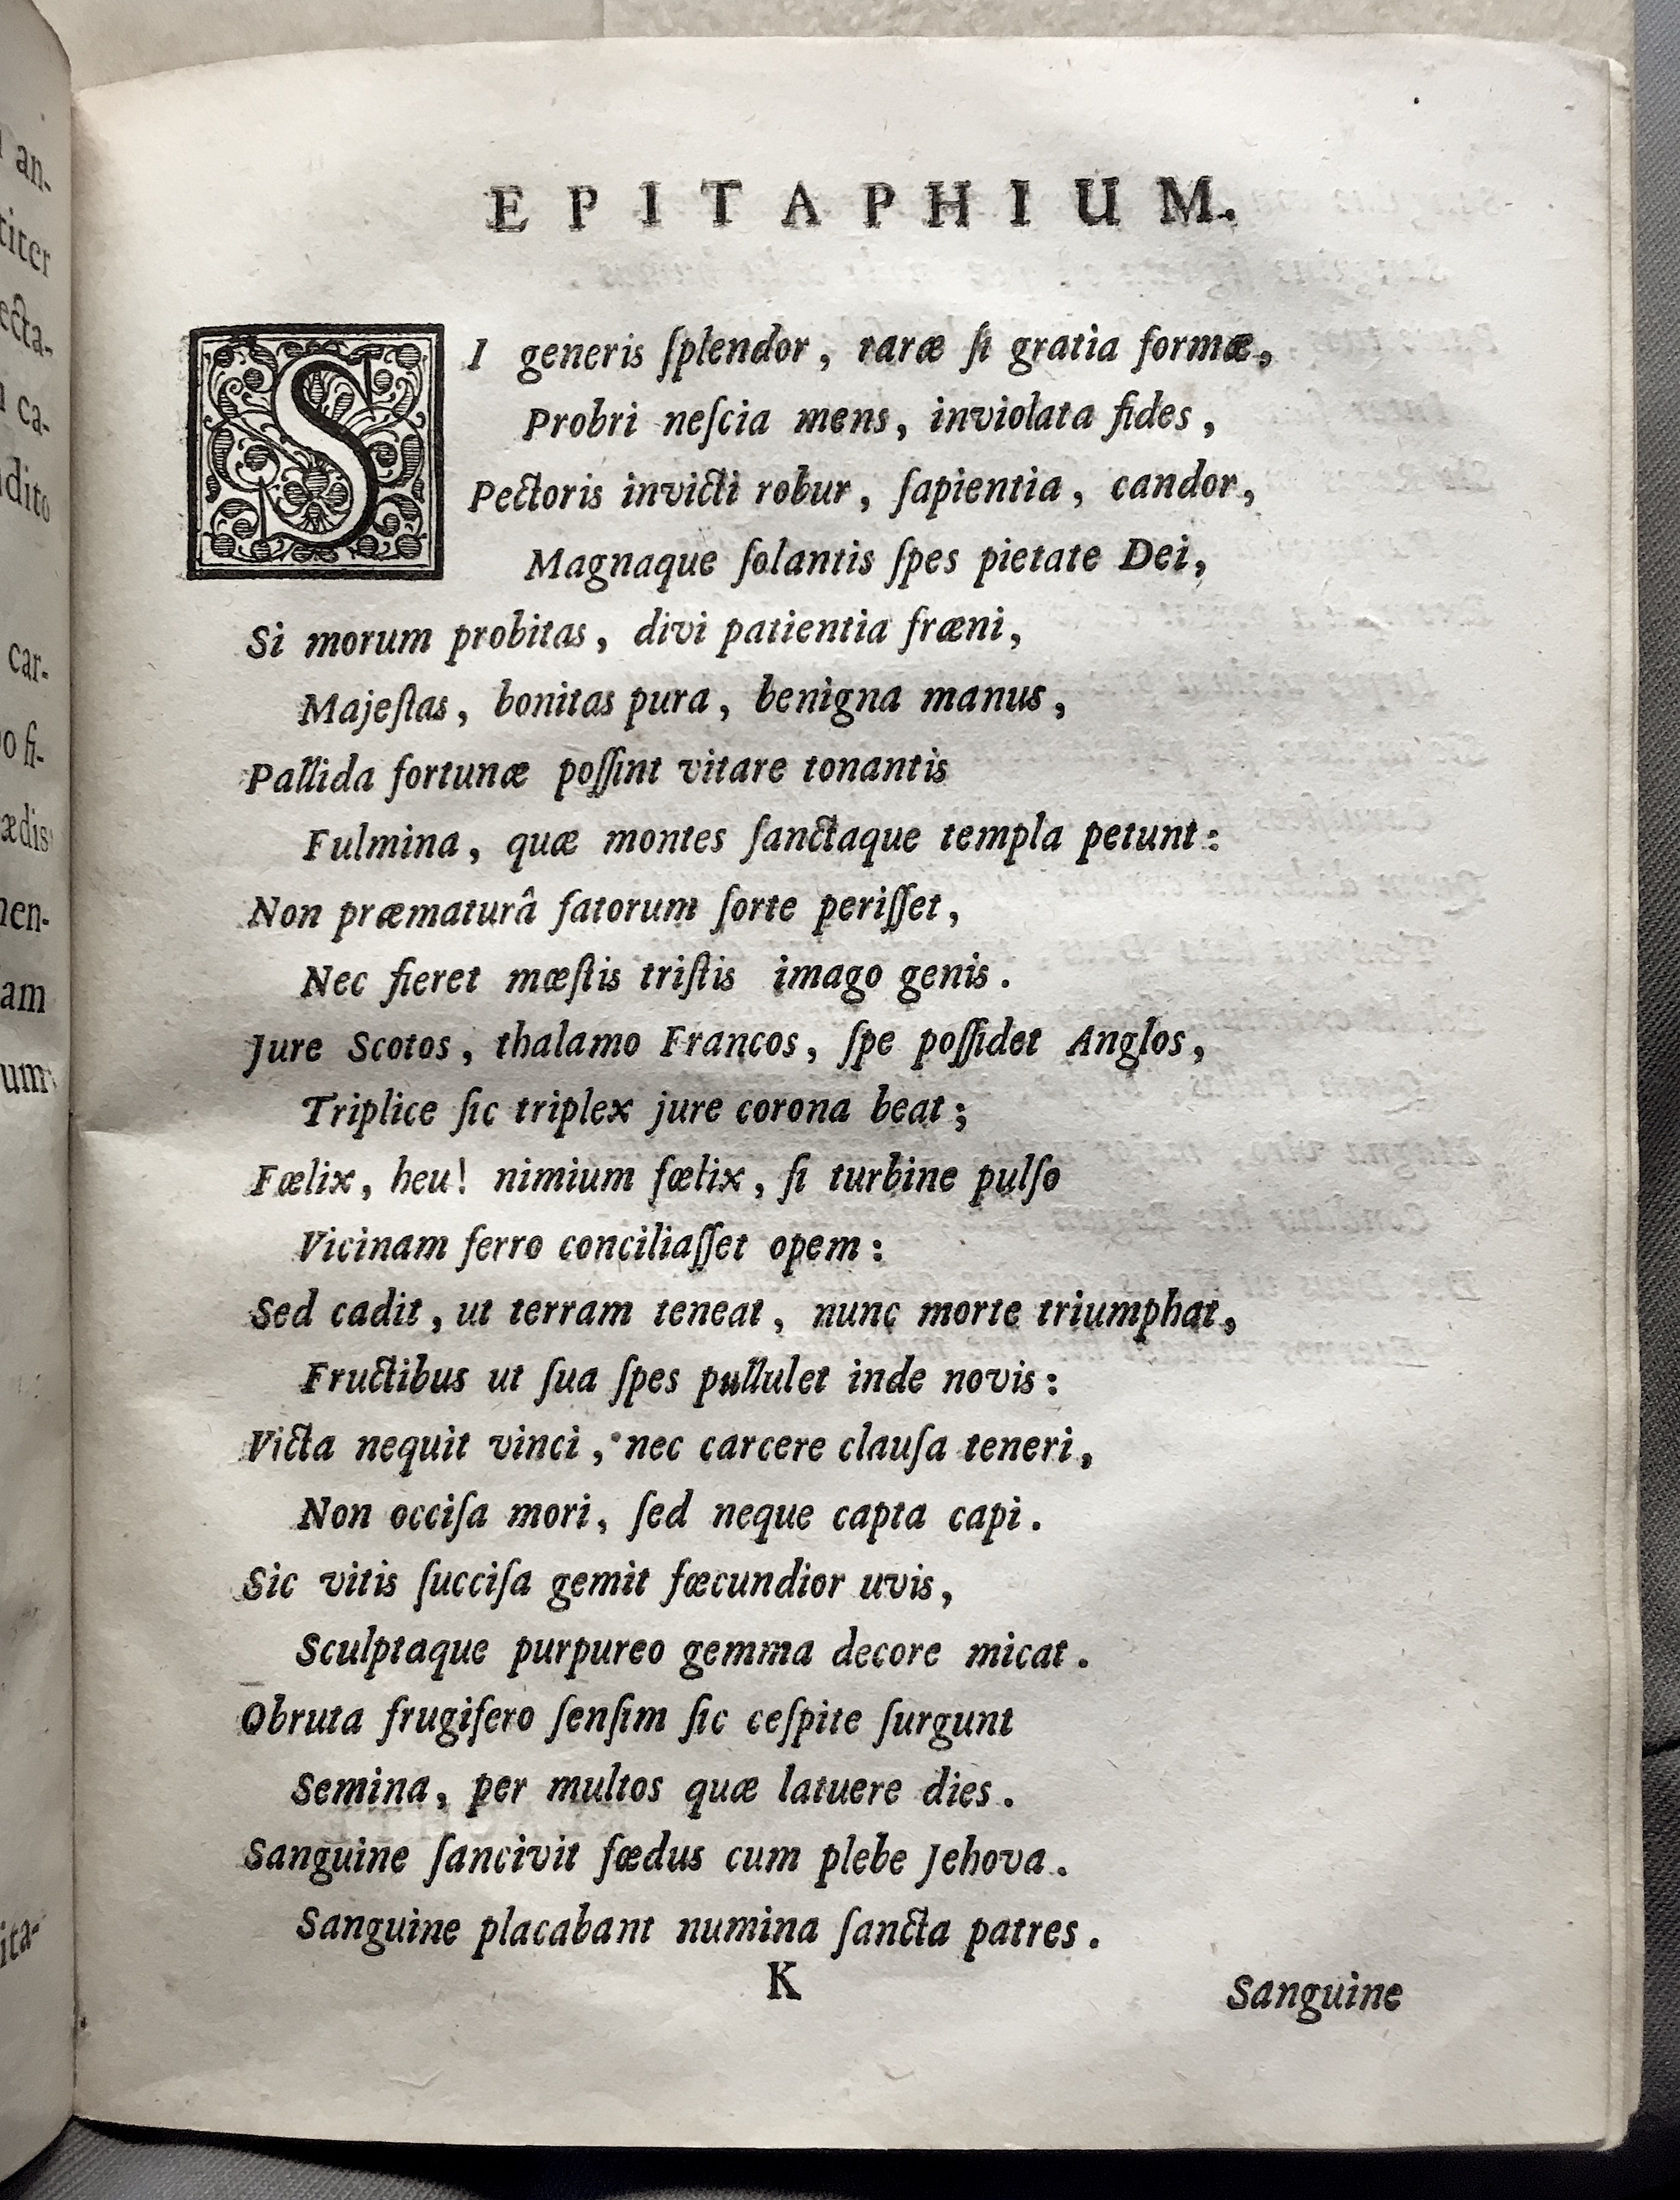 an-
titer
ecta-
ca-
dito
car-
o fi-
ædis
nen-
am
um
ita-
EPITAPHIUM.
SI generis ſplendor, raræ ſi gratia formæ,
Probri neſcia mens, inviolata fides,
Pectoris invicti robur, ſapientia, candor,
Magnaque ſolantis ſpes pietate Dei,
Si morum probitas, divi patientia fræni,
Majeſtas, bonitas pura, benigna manus,
Pallida fortunæ poſſint vitare tonantis
Fulmina, quæ montes ſanctaque templa petunt:
Non præmaturâ fatorum ſorte periſſet,
Nec fieret mœſtis triſtis imago genis.
Jure Scotos, thalamo Francos, ſpe poſſidet Anglos,
Triplice ſic triplex jure corona beat;
Fœlix, heu! nimium fœlix, ſi turbine pulſo
Vicinam ferro conciliaſſet opem:
Sed cadit, ut terram teneat, nunc morte triumphat,
Fructibus ut ſua ſpes pullulet inde novis:
Victa nequit vinci, nec carcere clauſa teneri,
Non occiſa mori, ſed neque capta capi.
Sic vitis ſucciſa gemit fœcundior uvis,
Sculptaque purpureo gemma decore micat.
Obruta frugifero ſenſim ſic ceſpite ſurgunt
Semina, per multos quæ latuere dies.
Sanguine ſancivit fœdus cum plebe Jehova.
Sanguine placabant numina ſancta patres.
K
Sanguine